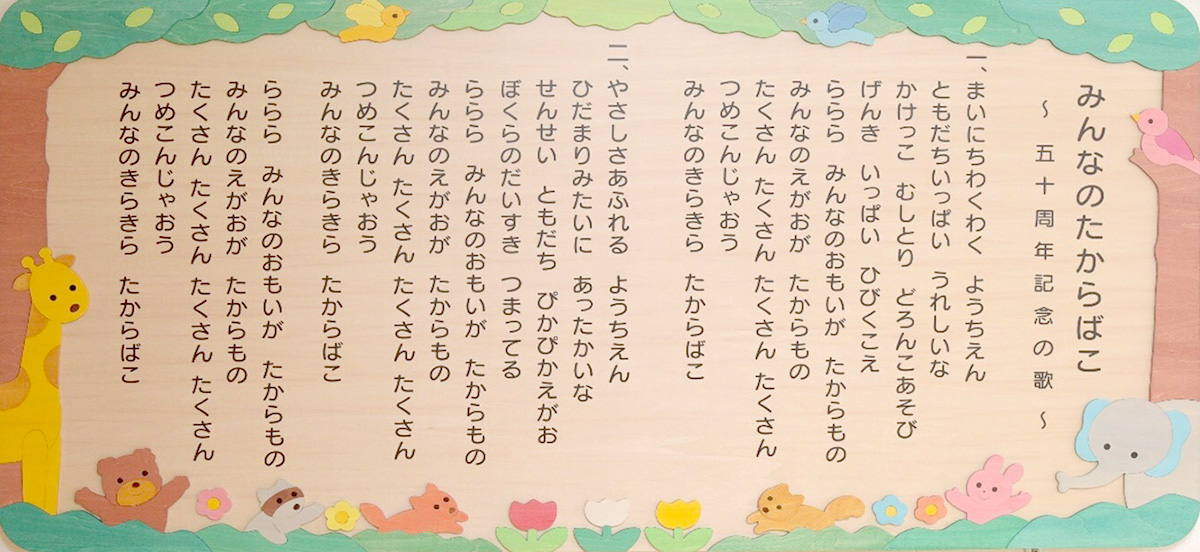 みんなのたからばこ
～ 五十周年記念の歌 ～
一、まいにちわくわく ようちえん
ともだちいっぱい うれしいな
かけっこ むしとり どろんこあそび
げんき いっぱい ひびくこえ
ららら みんなのおもいが たからもの
みんなのえがおが たからもの
たくさん たくさん たくさん たくさん
つめこんじゃおう
みんなのきらきら たからばこ
二、やさしさあふれる ようちえん
ひだまりみたいに あったかいな
せんせい ともだち ぴかぴかえがお
ぼくらのだいすき つまってる
ららら みんなのおもいが たからもの
みんなのえがおが たからもの
たくさん たくさん たくさん たくさん
つめこんじゃおう
みんなのきらきら たからばこ
ららら みんなのおもいが たからもの
みんなのえがおが たからもの
たくさん たくさん たくさん たくさん
つめこんじゃおう
みんなのきらきら たからばこ